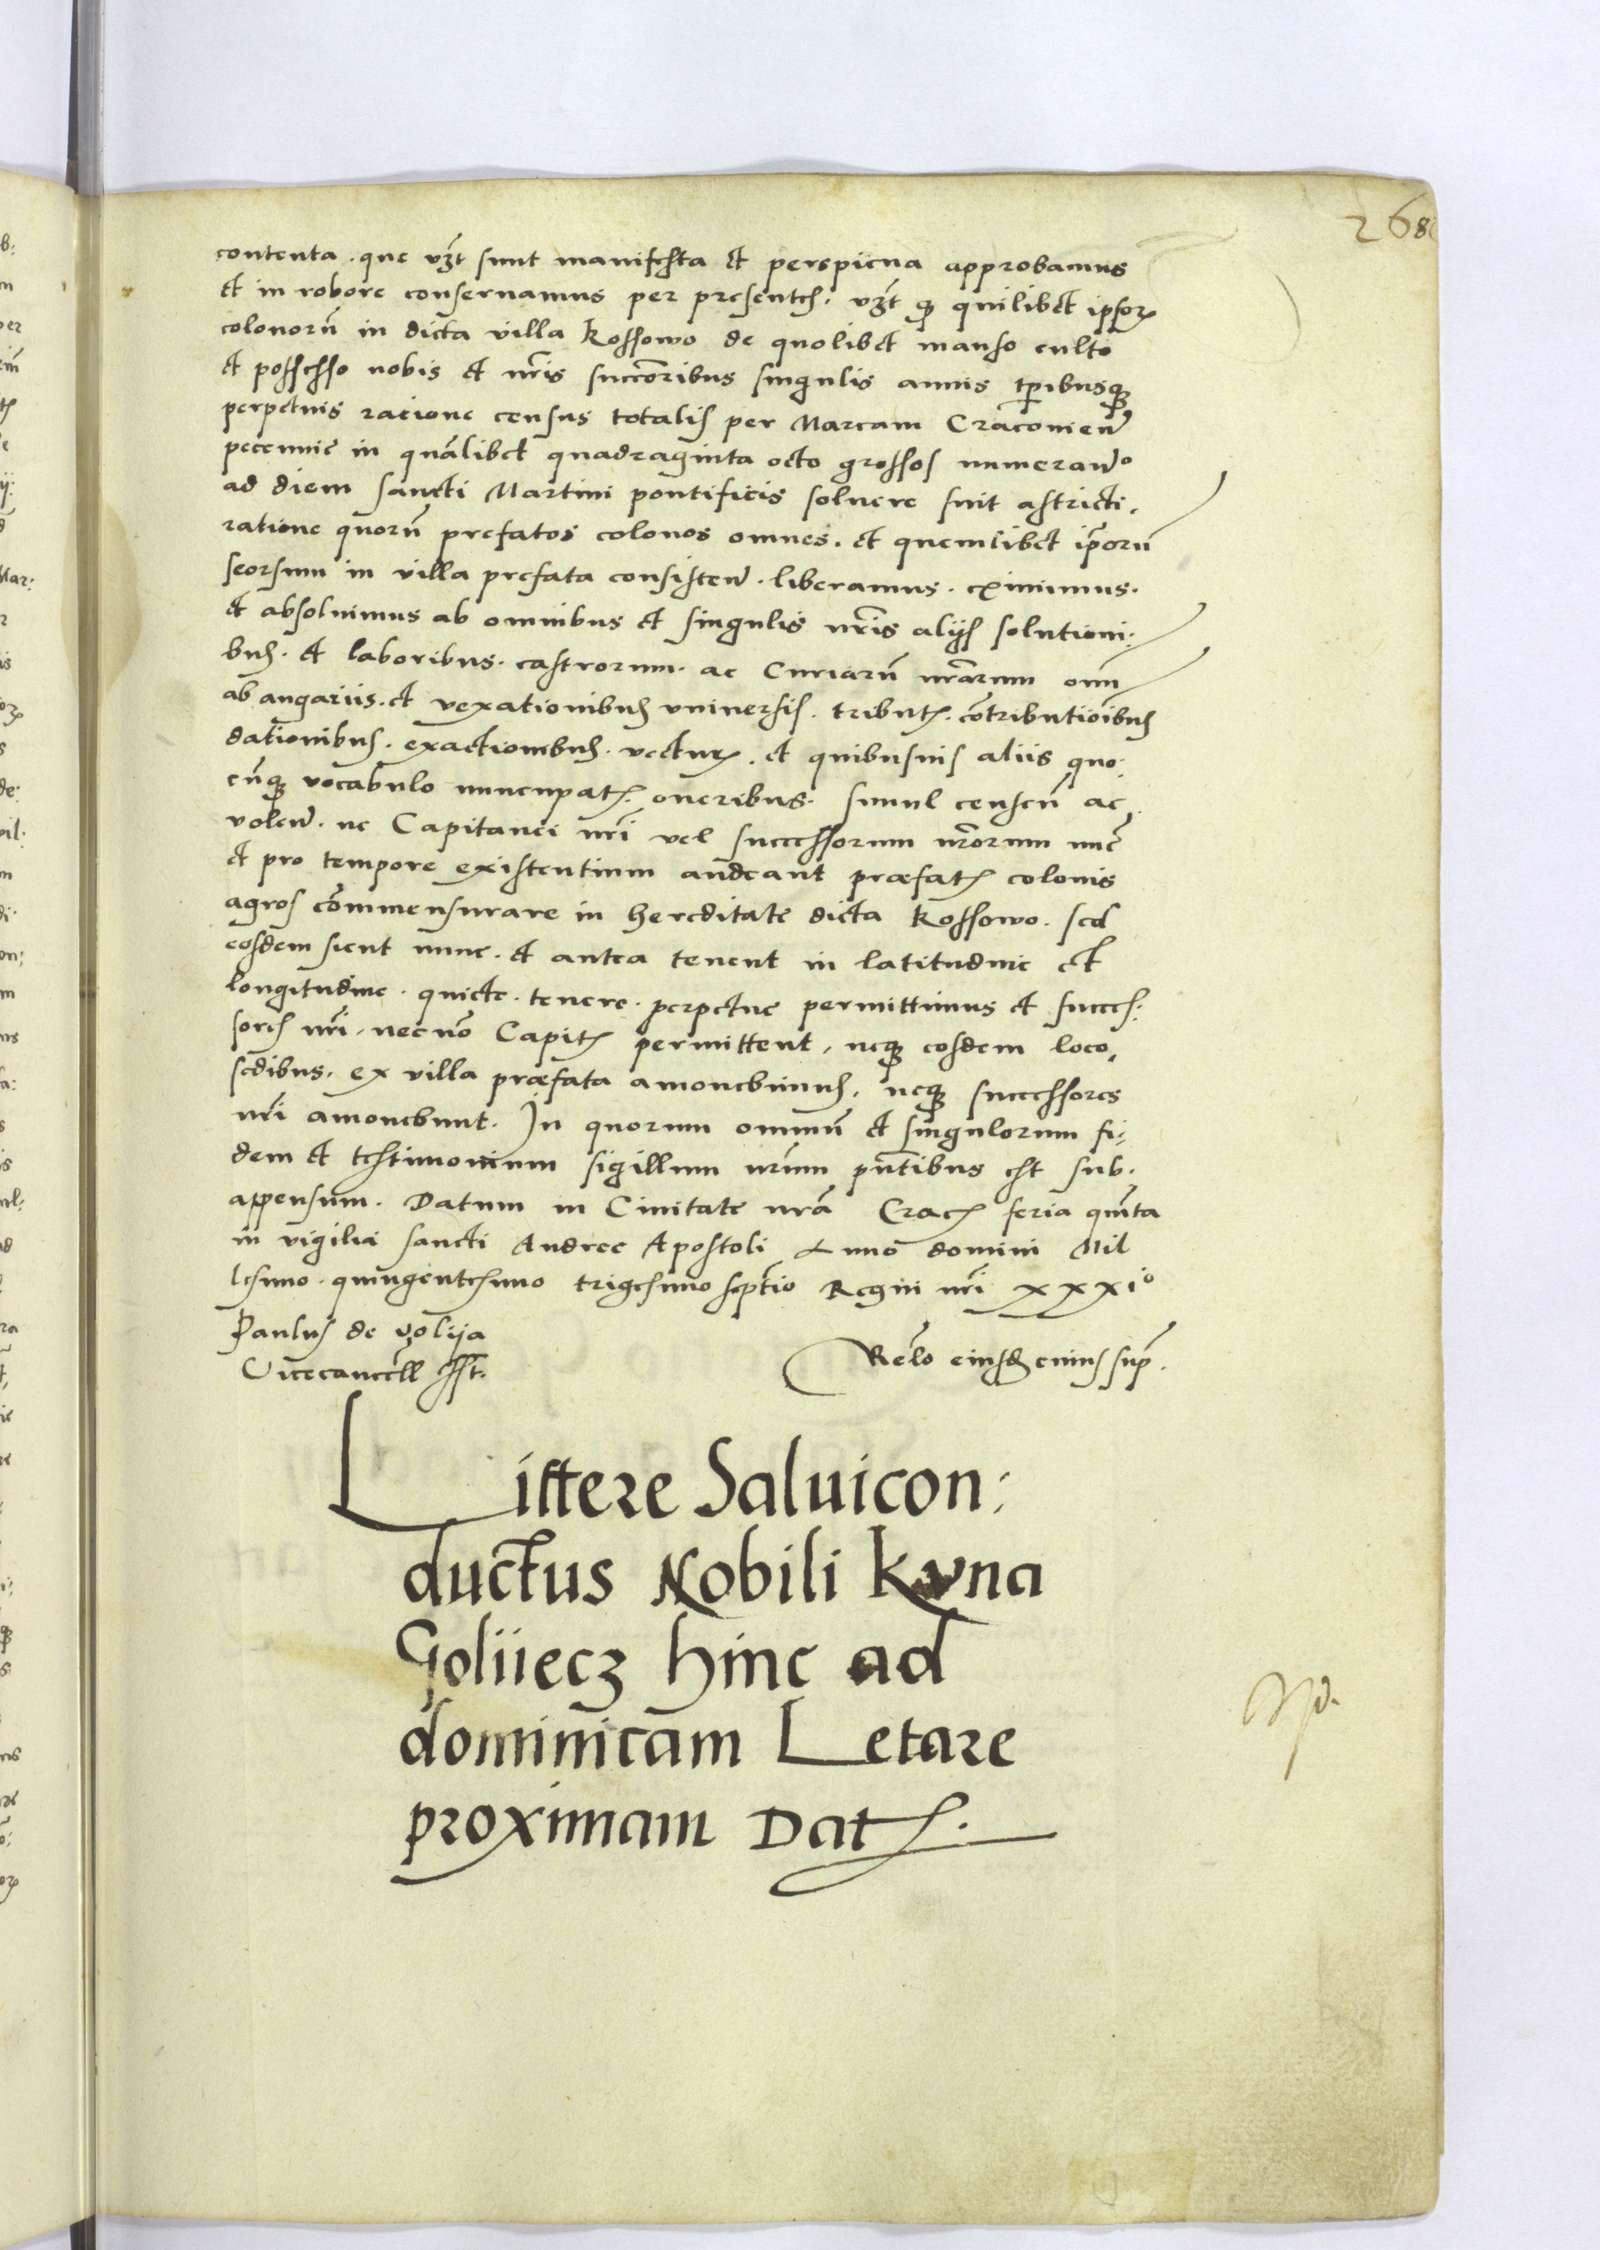 268
contenta. que vꝫt sunt manifesta et perspicua approbamus
et in robore conseruamus per presentes. vꝫt qꝫ quilibet ipsorꝫ
colonorū in dicta villa Kossowo de quolibet manso culto
et possesso nobis et nr̄is succoribus singulis annis tꝑibusqꝫ
perpetuis racione census totalis per Marcam Cracouien̄
pecunnie in quālibet quadraginta octo grossos numeran̄o
ad diem sancti Martini pontificis soluere sint astricti.
ratione quorū prefatos colonos omnes. et quemlibet ip̄orū
seorsum in villa prefata consisten̄. liberamus. eximimus.
et absoluimus ab omnibus et singulis nr̄is alijs solutioni:
bus. et laboribus. castrorum. ac Curiarū nr̄arum omn
ab angariis. et vexationibus vniuersis. tributꝭ. cōtributiōibus
dationibus. exactionibus. vecturꝭ. et quibusuis aliis quo:
cūqꝫ vocabulo nuncupatꝭ. oneribus. simul censen̄ ac
volen̄. ne Capitanei nr̄i vel successorum nr̄orum nūc
et pro tempore existentium audeant præfatꝭ colonis
agros cōmmensurare in hereditate dicta Kossowo. sed
eosdem sicut nunc. et antea tenent in latitudine et
longitudine. quiete. tenere. perpetue permittimus et succes:
sores nr̄i. nec nō Capitꝭ permittent, neqꝫ eosdem loco,
sedibus. ex villa præfata amouebimus. neqꝫ successores
nr̄i amouebunt. In quorum omniū et singulorum fi:
dem et testimonium sigillum nr̄um pn̄tibus est sub.
appensum. Datum in Ciuitate nr̄a Cracꝭ feria quīta
in vigilia sancti Andree Apostoli Anno domini Mil
lesimo. quingentesimo trigesimo sep̄tio Regni nr̄i xxxio
Paulus de volija
Vicecancell sst.
Relo eiusdꝫ cuius sup̄.
Littere Saluicon:
ductus Nobili Kuna
Goliiecz hinc ad
dominicam Letare
proximam Datꝭ.